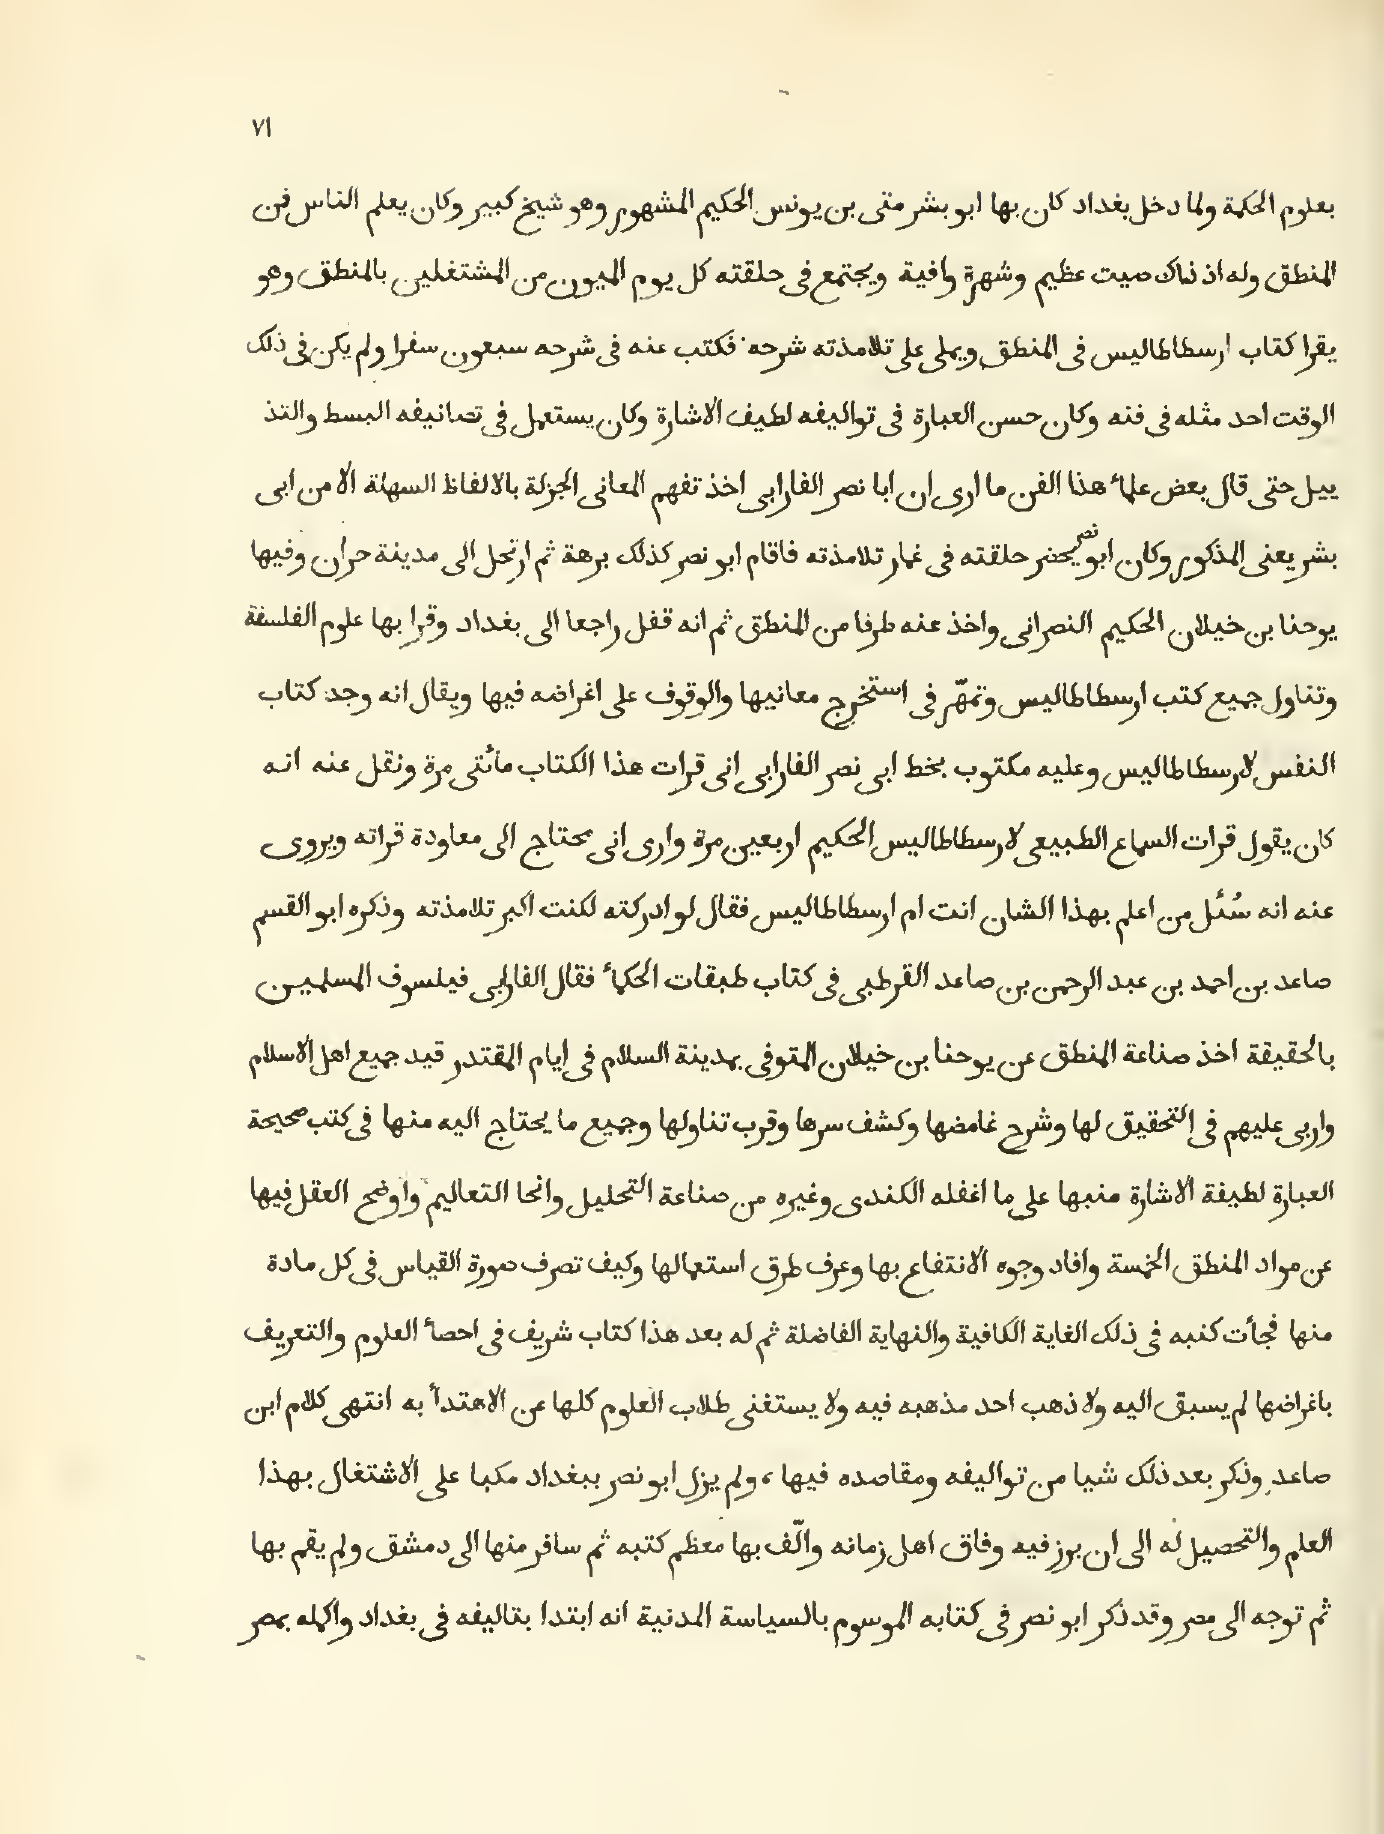 ٧١
بعلوم الحكمة ولما دخل بغداد كان بها ابو بشر متى بن يونس الحكيم المشهور وهو شيخ كبير وكان يعلم الناس فن
المنطق وله اذ ذاك صيت عظيم وشهرة وافية ويجتمع فى حلقته كل يوم الميون من المشتغلين بالمنطق وهو
يقرا كتاب ارسطاطاليس فى المنطق ويملى على تلامذته شرحه فكتب عنه فى شرحه سبعون سفرا ولم يكن فى ذلك
الوقت احد مثله فى فنه وكان حسن العبارة فى تواليفه لطيف الاشارة وكان يستعمل فى تصانيفه البسط والتذ
ييل حتى قال بعض علمآ هذا الفن ما ارى ان ابا نصر الفارابى اخذ تفهم المعانى الجزلة بالالفاظ السهلة الا من ابى
بشر يعنى المذكور وكان ابو نصر يحضر حلقته فى غمار تلامذته فاقام ابو نصر كذلك برهة ثم ارتحل الى مدينة حران وفيها
يوحنا بن خيلان الحكيم النصرانى واخذ عنه طرفا من المنطق ثم انه قفل راجعا الى بغداد وقرا بها علوم الفلسفة
وتناول جميع كتب ارسطاطاليس وتمهّر فى استخرج معانيها والوقوف على اغراضه فيها ويقال انه وجد كتاب
النفس لارسطاطاليس وعليه مكتوب بخط ابى نصر الفارابى انى قرات هذا الكتاب مأتتى مرة ونقل عنه انه
كان يقول قرات السماع الطبيعى لارسطاطاليس الحكيم اربعين مرة وارى انى محتاج الى معاودة قراته ويروى
عنه انه سُئل من اعلم بهذا الشان انت ام ارسطاطاليس فقال لو ادركته لكنت اكبر تلامذته وذكره ابو القسم
صاعد بن احمد بن عبد الرحمن بن صاعد القرطبى فى كتاب طبقات الحكمآ فقال الفارابى فيلسوف المسلمين
بالحقيقة اخذ صناعة المنطق عن يوحنا بن خيلان المتوفى بمدينة السلام فى ايام المقتدر قيد جميع اهل الاسلام
واربى عليهم فى التحقيق لها وشرح غامضها وكشف سرها وقرب تناولها وجميع ما يحتاج اليه منها فى كتب صحيحة
العبارة لطيفة الاشارة منبها على ما اغفله الكندى وغيره من صناعة التحليل وانحا التعاليم واوضح العقل فيها
عن مواد المنطق الخمسة وافاد وجوه الانتفاع بها وعرف طرق استعمالها وكيف تصرف صورة القياس فى كل مادة
منها فجأت كتبه فى ذلك الغاية الكافية والنهاية الفاضلة ثم له بعد هذا كتاب شريف فى احصآ العلوم والتعريف
باغراضها لم يسبق اليه ولا ذهب احد مذهبه فيه ولا يستغنى طلاب العلوم كلها عن الاهتدآ به انتهى كلام ابن
صاعد وذكر بعد ذلك شيا من تواليفه ومقاصده فيها، ولم يزل ابو نصر ببغداد مكبا على الاشتغال بهذا
العلم والتحصيل له الى ان برز فيه وفاق اهل زمانه والّف بها معظم كتبه ثم سافر منها الى دمشق ولم يقم بها
ثم توجه الى مصر وقد ذكر ابو نصر فى كتابه الموسوم بالسياسة المدنية انه ابتدا بتاليفه فى بغداد واكمله بمصر